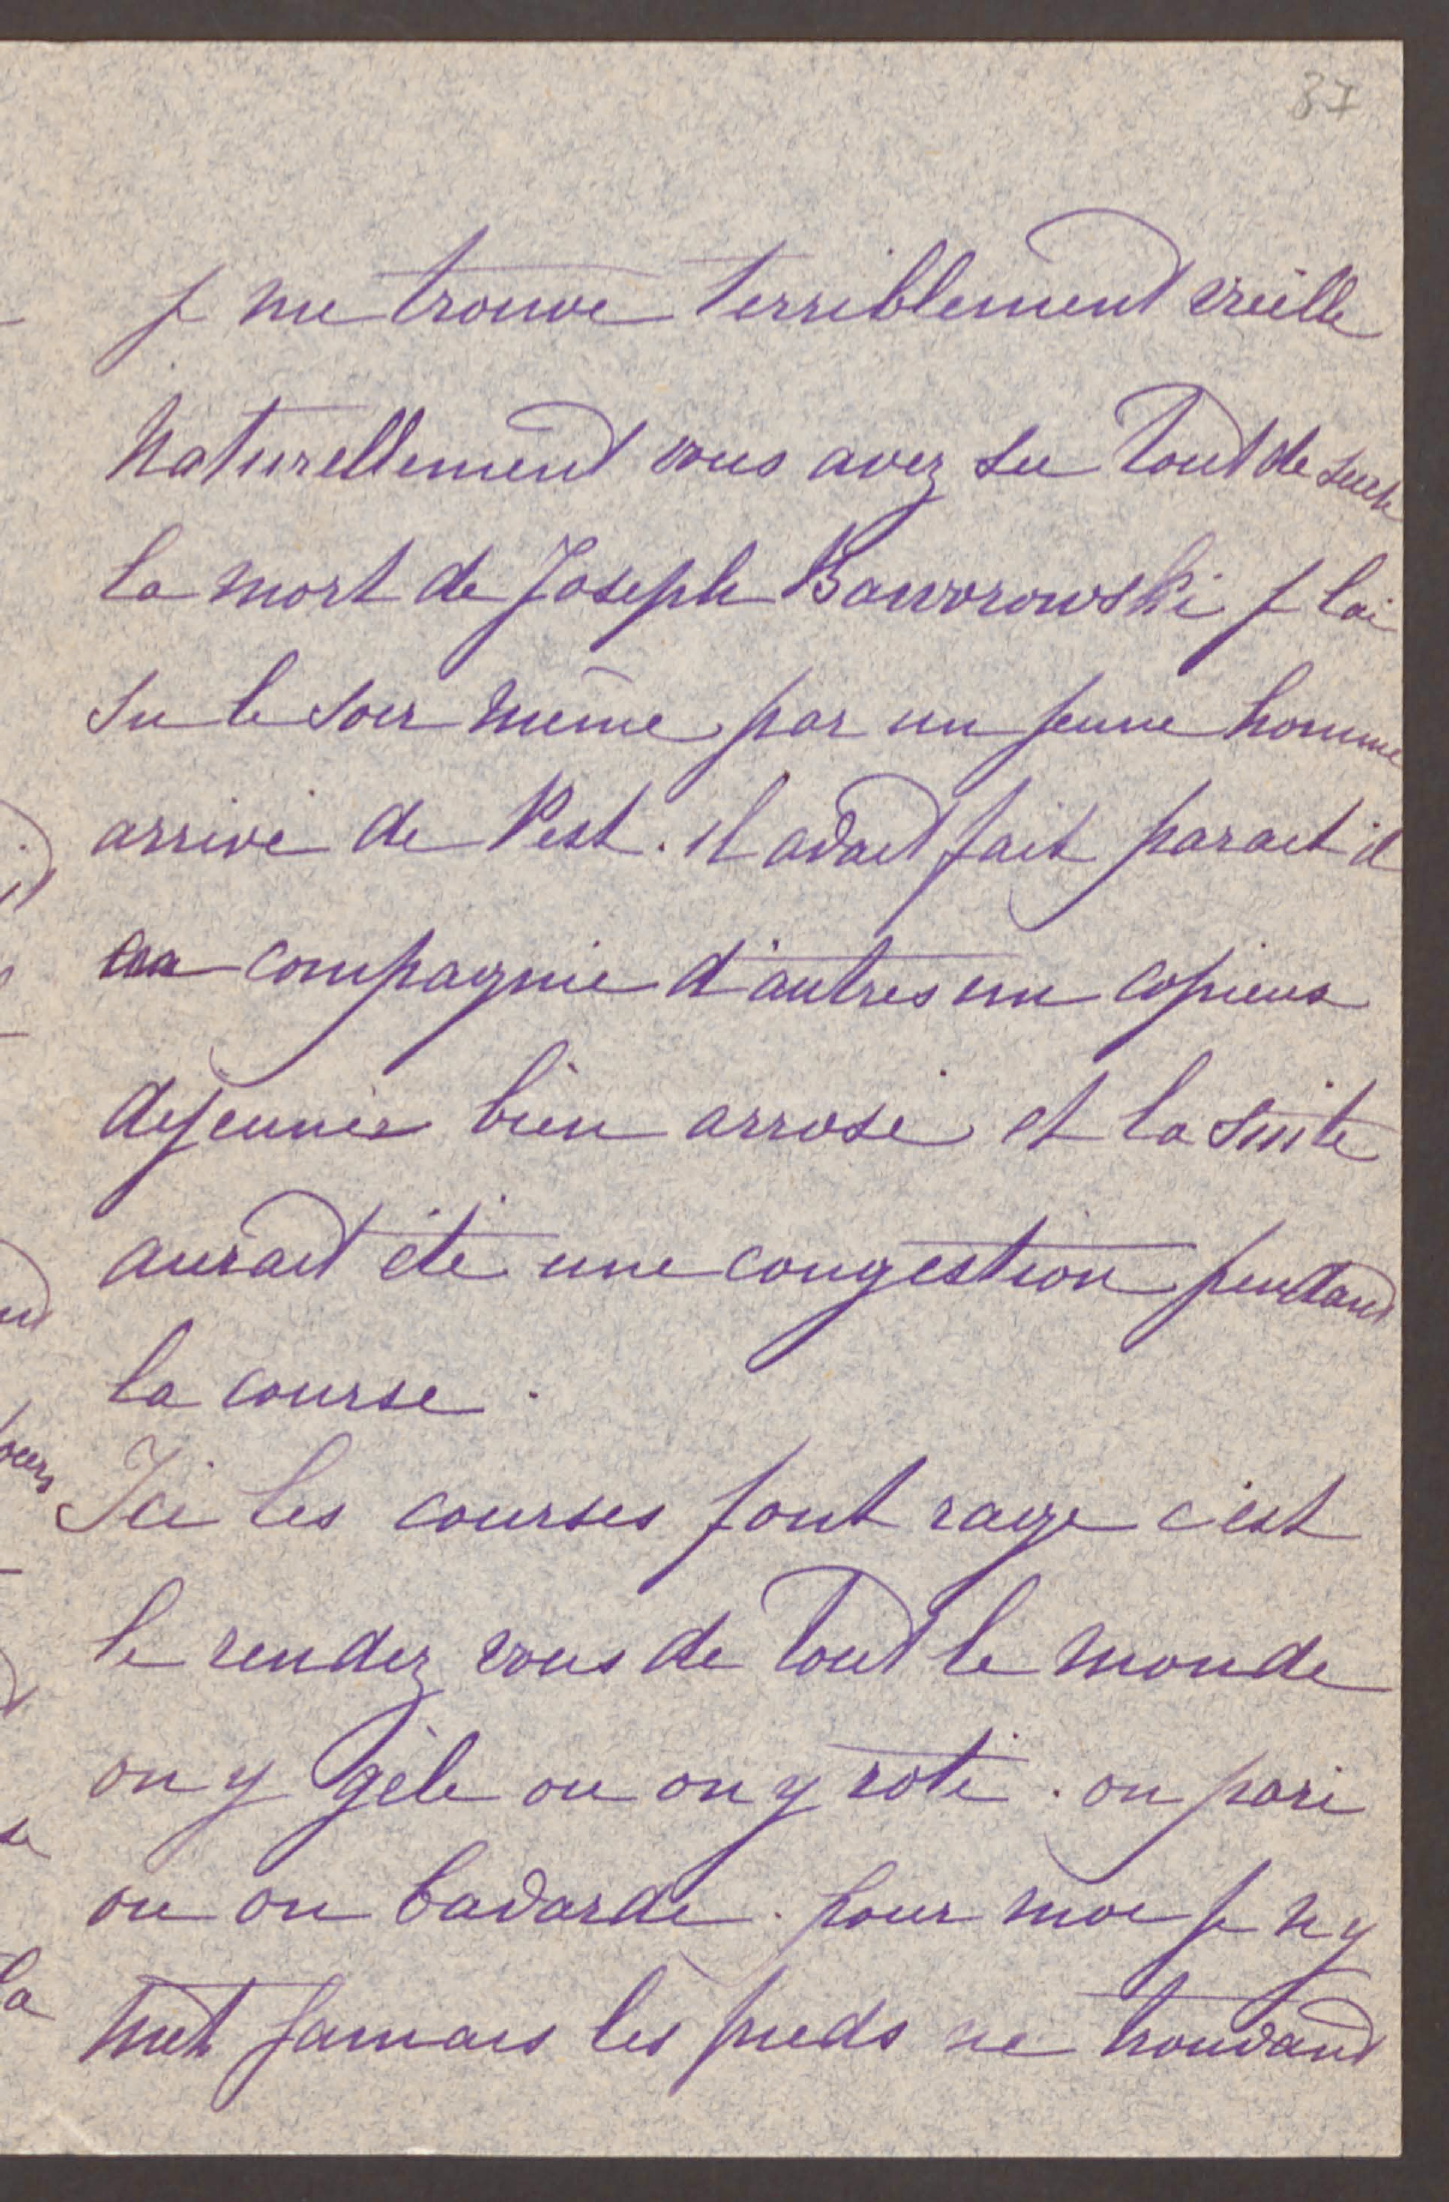 37
je me trouve terriblement vieille
Naturellement vous avez su tout de suite
la mort de Joseph Baworowski je l'ai
su le soir même par un jeune homme
arrivé de Pest. il avait fait parait il
en compagnie d'autres un copieux
dejeuner bien arrosé et la suite
aurait été une congestion pendant
la course.
Ici les courses font rage c'est
le rendez vous de tout le monde
on y gèle ou on y roti. on pari
ou on bavarde. pour moi je n'y
met jamais les pieds ne trouvant